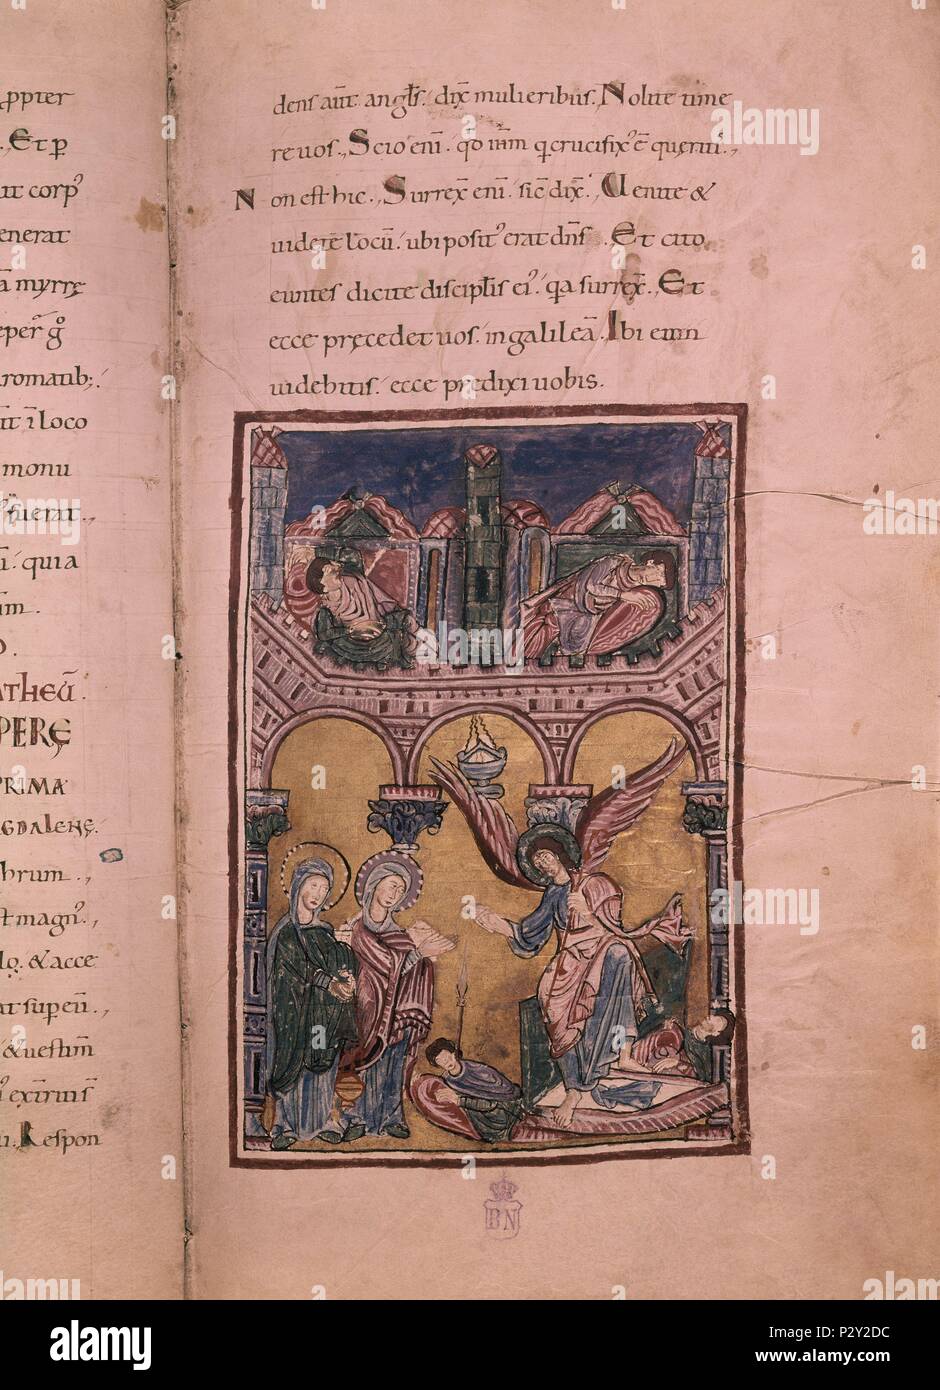 ꝑpter
. Et ꝑ
ut corpꝰ
enerat
ā myrrę
romatib;.
ıt ī loco
monu
fuerat.,
ı. quia
ım.
atheū.
PERE
PRIMA
GDALENE.
brum.,
t magnꝰ.,
lo. & acce
at sup eū.
& uestim
ꝰ exīrıııs̄
ıı. Respon
dens aūt angls̄. dix̄ mulieribus. Nolite time
re uos., Scio enī. qd̄ ihm̄ q crucifixꝰ ē querıtı.,
Non est hic., Surrex̄ enī. sic̄ dix̄. Uenite &
uidete locū. ubi positꝰ erat dn̄s. Et cito
euntes dicite discipl̄is eiꝰ. qa surrex̄., Et
ecce pręcedet uos. in galileā. Ibi eum
uidebitis. ecce predixi uobis.
BN
alamy
Image ID: P2Y2DC
www.alamy.com